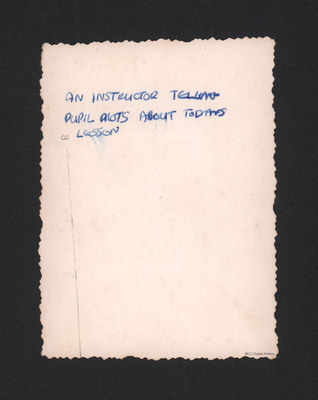 AN INSTRUCTOR TELLING
PUPIL PILOTS ABOUT TODAYS
8 LESSON
IBCC Digital Archive